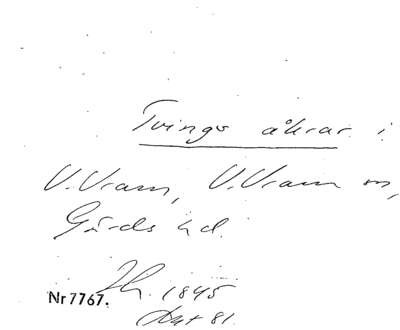 Tvings åkrar i
V. Vram, V. Vram sn,
Gärds hd.
Nr 7767. 1845
Avt 81.